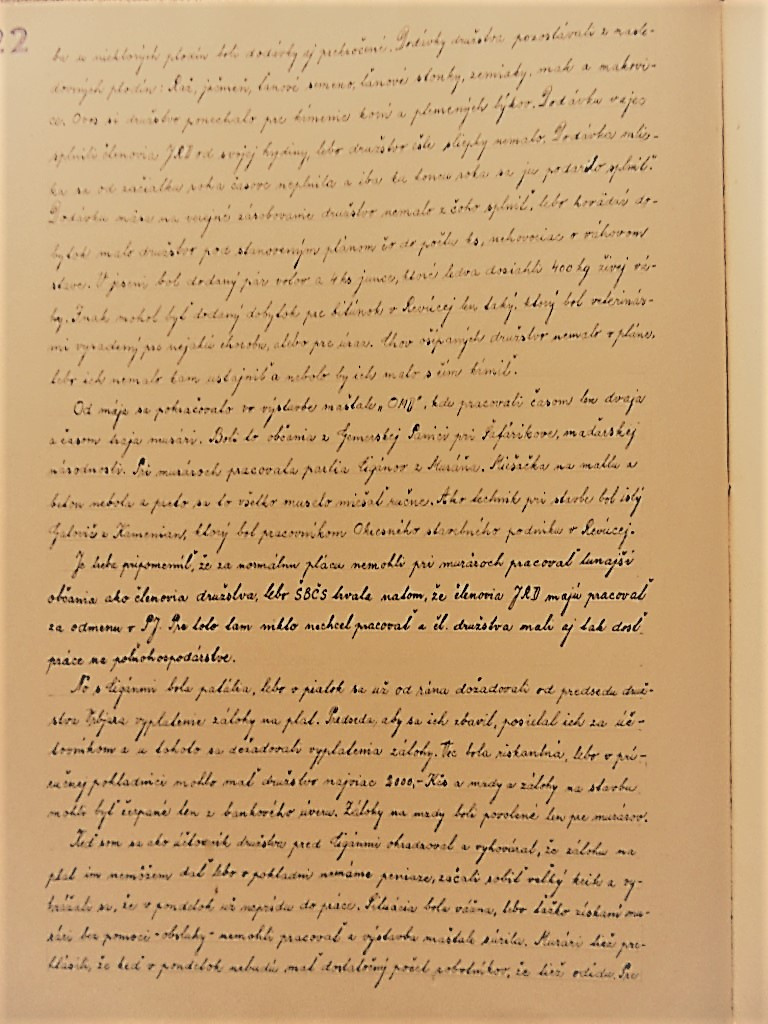 22
bu u niektorých plodín boli dodávky aj prekročené. Dodávky družstva pozostávali z nasle-
dovných plodín: Raž, jačmeň, ľanové semeno, ľanové stonky, zemiaky, mak a makovi-
ce. Ovos si družstvo ponechalo pre kŕmenie koní a plemenných býkov. Dodávku vajec
splnili členovia JRD od svojej hydiny, lebo družstvo ešte sliepky nemalo. Dodávka mlie-
ka sa od začiatku roka časove neplnila a iba ku koncu roka sa ju podarilo splniť.
Dodávku mäsa na verejné zásobovanie družstvo nemalo z čoho splniť, lebo hovädzí do-
bytok malo družstvo pod stanoveným plánom čo do počtu ks, nehovoriac o váhovom
stave. V jeseni bol dodaný pár volov a 4 ks junce, ktoré ledva dosiahli 400 kg živej vá-
hy. Inak mohol byť dodaný dobytok pre bitúnok v Revúcej len taký, ktorý bol veterinár-
mi vyradený pre nejakú chorobu, alebo pre úraz. Chov ošípaných družstvo nemalo v pláne,
lebo ich nemalo kam ustajniť a nebolo by ich malo s čím kŕmiť.
Od mája sa pokračovalo vo výstavbe maštale, kde pracovali časom len dvaja
a časom traja murári. Boli to občania z Gemerskej Panici pri Šafárikove, maďarskej
národnosti. Pri murároch pracovala partia Cigánov z Muráňa. Miešačka na maltu a
beton nebola a preto sa to všetko muselo miešať ručne. Ako technik pri stavbe bol istý
Galovič z Kamenian, ktorý bol pracovníkom Okresného stavebného podniku v Revúcej.
Je treba pripomenúť, že za normálnu plácu nemohli pri murároch pracovať tunajší
občania ako členovia družstva, lebo ŠBČS trvala natom, že členovia JRD majú pracovať
za odmenu v PJ. Pre toto tam nikto nechcel pracovať a čl. družstva mali aj tak dosť
práce na poľnohospodárstve.
No s Cigánmi bola patália, lebo v piatok sa už od rána dožadovali od predsedu druž-
stva vyplatenie zálohy na plat. Predseda, aby sa ich zbavil, posielal ich za úč-
tovníkom a u tohoto sa dožadovali vyplatenia zálohy. Vec bola riskantná, lebo v prí-
ručnej pokladnici mohlo mať družstvo najviac 2000,- Kčs a mzdy a zálohy na stavbu
mohli byť čerpané len z bankového úveru. Zálohy na mzdy boli povolené len pre murárov.
Keď som sa ako účtovník družstva pred Cigánmi ohradzoval a vyhováral, že zálohu na
plat im nemôžem dať lebo v pokladni nemáme peniaze, začali robiť veľký krik a vy-
hrážali sa, že v pondelok už neprídu do práce. Situácia bola vážna, lebo ťažko získaní mu-
rári bez pomoci - obsluhy - nemohli pracovať a výstavba maštale súrila. Murári tiež pre-
hlásili, že keď v pondelok nebudú mať dostatočný počet robotníkov, že tiež odídu. Pre